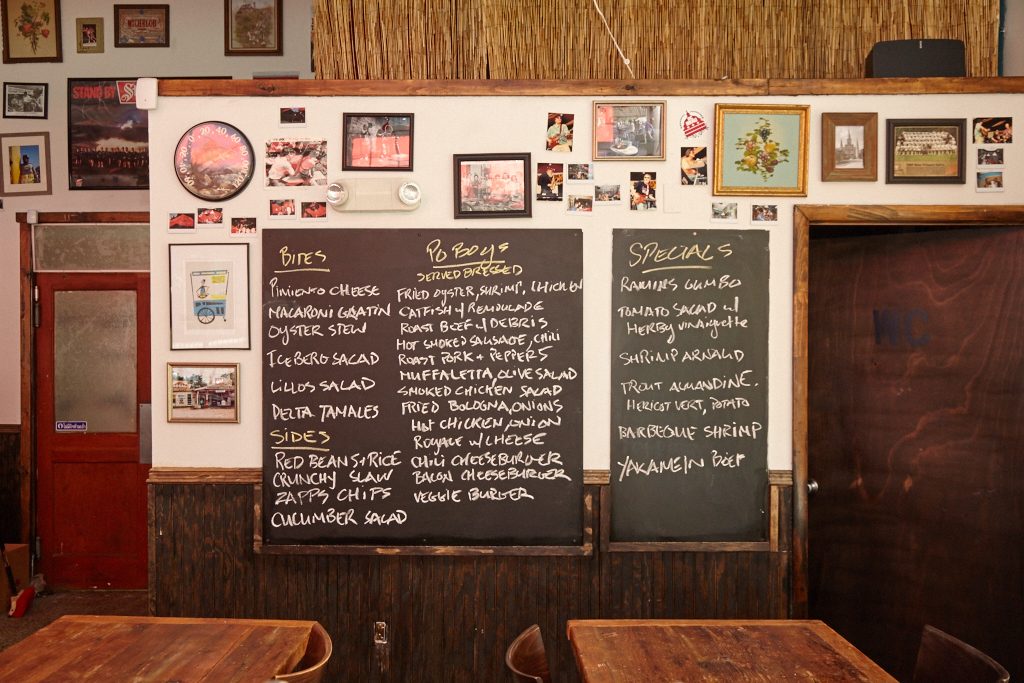 MICHELOB
STAND BY
0 20 40 60 80
BITES
PIMIENTO CHEESE
MACARONI GRATIN
OYSTER STEW
ICEBERG SALAD
LILLOS SALAD
DELTA TAMALES
SIDES
RED BEANS + RICE
CRUNCHY SLAW
ZAPPS CHIPS
CUCUMBER SALAD
PO BOYS
SERVED DRESSED
FRIED OYSTER, SHRIMP, CHICKEN
CATFISH W/ REMOULADE
ROAST BEEF W/ DEBRIS
HOT SMOKED SAUSAGE, CHILI
ROAST PORK + PEPPERS
MUFFALETTA, OLIVE SALAD
SMOKED CHICKEN SALAD
FRIED BOLOGNA, ONIONS
HOT CHICKEN, ONION
ROYALE W/ CHEESE
CHILI CHEESEBURGER
BACON CHEESEBURGER
VEGGIE BURGER
SPECIALS
RAMINS GUMBO
TOMATO SALAD W/
HERBY VINAIGRETTE
SHRIMP ARNAUD
TROUT ALMANDINE.
HERICOT VERT, POTATO
BARBEQUE SHRIMP
YAKAMEIN BEEF
WC